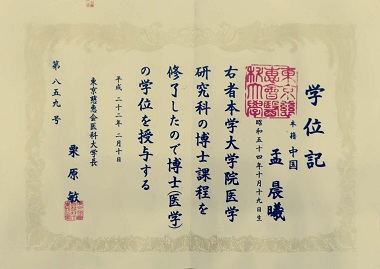 学位記
本籍 中国
孟 晨曦
昭和五十四年十月十九日生
右者本学大学院医学
研究科の博士課程を
修了したので博士(医学)
の学位を授与する
平成 二十二年 二月十日
東京慈恵会医科大学長
栗原 敏
第 八五九 号